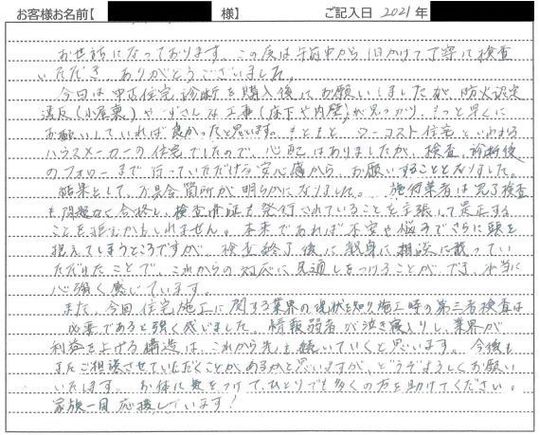 お客様お名前【 様】 ご記入日 2021年
お世話になっております。この度は午前中から1日かけて丁寧に検査
いただき、ありがとうございました。
今回は中古住宅診断を購入後にお願いしましたが、防火認定
違反(小屋裏)や ずさんな工事(床下や内壁)が見つかり、もっと早くに
お願いしていれば良かったと思います。もともと、ローコスト住宅といわれる
ハウスメーカーの住宅でしたので、心配はありましたが、検査、診断後
のフォローまで行っていただける安心感から、お願いすることとなりました。
結果として、不具合箇所が明らかになりました。施工業者は完了検査
も問題なく合格し、検査済証も発行されていることを主張して是正する
ことを拒むかもしれません。本来であれば不安や悩みでさらに頭を
抱えてしまうところですが、検査終了後に親身に相談に載ってい
ただけたことで、これからの対応に見通しをつけることができ、本当に
心強く感じています。
また、今回住宅施工に関する業界の現状を知り、施工時の第三者検査は
必要であると強く感じました。情報弱者が泣き寝入りし、業界が
利益を上げる構造は、これから先も続いていくと思います。今後も
またご相談させていただくことがあるかと思いますが、どうぞよろしくお願い
いたします。お体に気をつけて、ひとりでも多くの方を助けてください。
家族一同応援しています!